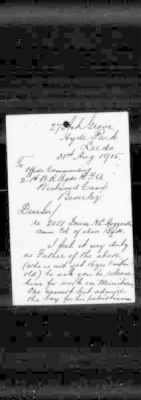 27 Ash Grove
Hyde Park
Leeds
31st Aug 1915.
To
Officer Commanding
2nd W.R. Bde R.F.A
Westwood Camp
Beverley
Dear Sir/
re 2051 Driver
Amm Col of above Bgde
I feel it my duty
as Father of the above
(who is not yet 16 yrs
old) to ask you to release
him for work on Munitions
One cannot but admire
the boy for his patriotism